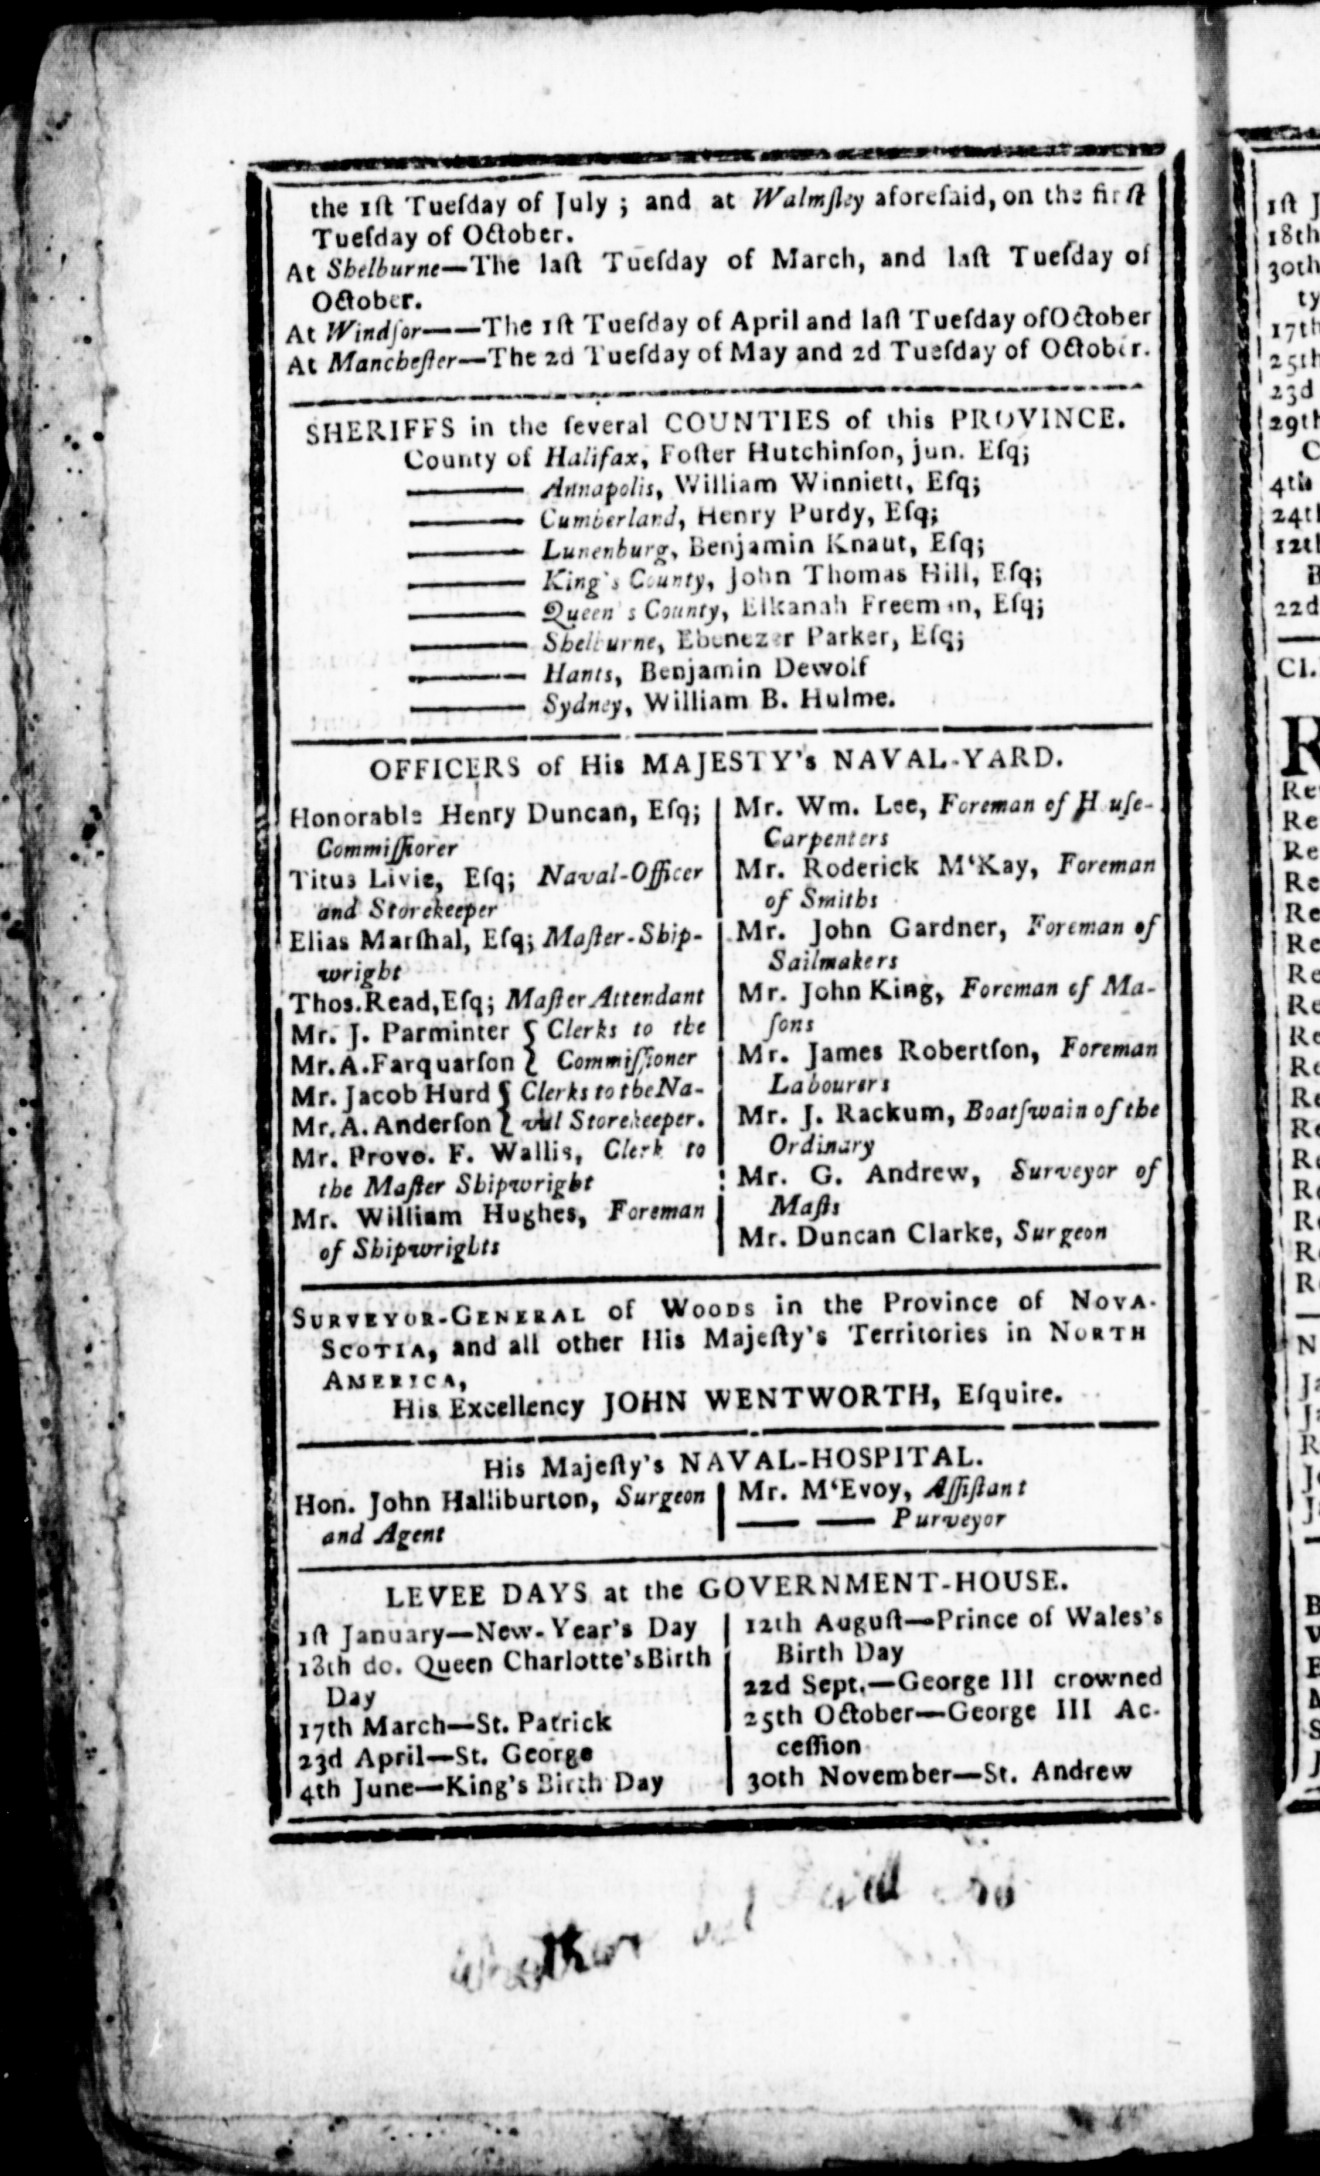 the 1ſt Tueſday of July ; and at Walmſley aforeſaid, on the firſt
Tueſday of October.
At Shelburne—The laſt Tueſday of March, and laſt Tueſday of
October.
At Windſor——The 1ſt Tueſday of April and laſt Tueſday of October
At Mancheſter—The 2d Tueſday of May and 2d Tueſday of October.
SHERIFFS in the ſeveral COUNTIES of this PROVINCE.
County of Halifax, Foſter Hutchinſon, jun. Eſq;
——— Annapolis, William Winniett, Eſq;
——— Cumberland, Henry Purdy, Eſq;
——— Lunenburg, Benjamin Knaut, Eſq;
——— King's County, John Thomas Hill, Eſq;
——— Queen's County, Elkanah Freeman, Eſq;
——— Shelburne, Ebenezer Parker, Eſq;
——— Hants, Benjamin Dewolf
——— Sydney, William B. Hulme.
OFFICERS of His MAJESTY's NAVAL-YARD.
Honorable Henry Duncan, Eſq;
Commiſſiorer
Titus Livie, Eſq; Naval-Officer
and Storekeeper
Elias Marſhal, Eſq; Maſter-Ship-
wright
Thos. Read, Eſq; Maſter Attendant
Mr. J. Parminter } Clerks to the
Mr. A. Farquarſon } Commiſſioner
Mr. Jacob Hurd } Clerks to the Na-
Mr. A. Anderſon } val Storekeeper.
Mr. Provo. F. Wallis, Clerk to
the Maſter Shipwright
Mr. William Hughes, Foreman
of Shipwrights
Mr. Wm. Lee, Foreman of Houſe-
Carpenters
Mr. Roderick M‘Kay, Foreman
of Smiths
Mr. John Gardner, Foreman of
Sailmakers
Mr. John King, Foreman of Ma-
ſons
Mr. James Robertſon, Foreman
Labourers
Mr. J. Rackum, Boatſwain of the
Ordinary
Mr. G. Andrew, Surveyor of
Maſts
Mr. Duncan Clarke, Surgeon
SURVEYOR-GENERAL of WOODS in the Province of NOVA-
SCOTIA, and all other His Majeſty's Territories in NORTH
AMERICA,
His Excellency JOHN WENTWORTH, Eſquire.
His Majeſty's NAVAL-HOSPITAL.
Hon. John Halliburton, Surgeon
and Agent
Mr. M‘Evoy, Aſſiſtant
—— —— Purveyor
LEVEE DAYS at the GOVERNMENT-HOUSE.
1ſt January—New-Year's Day
18th do. Queen Charlotte's Birth
Day
17th March—St. Patrick
23d April—St. George
4th June—King's Birth Day
12th Auguſt—Prince of Wales's
Birth Day
22d Sept.—George III crowned
25th October—George III Ac-
ceſſion
30th November—St. Andrew